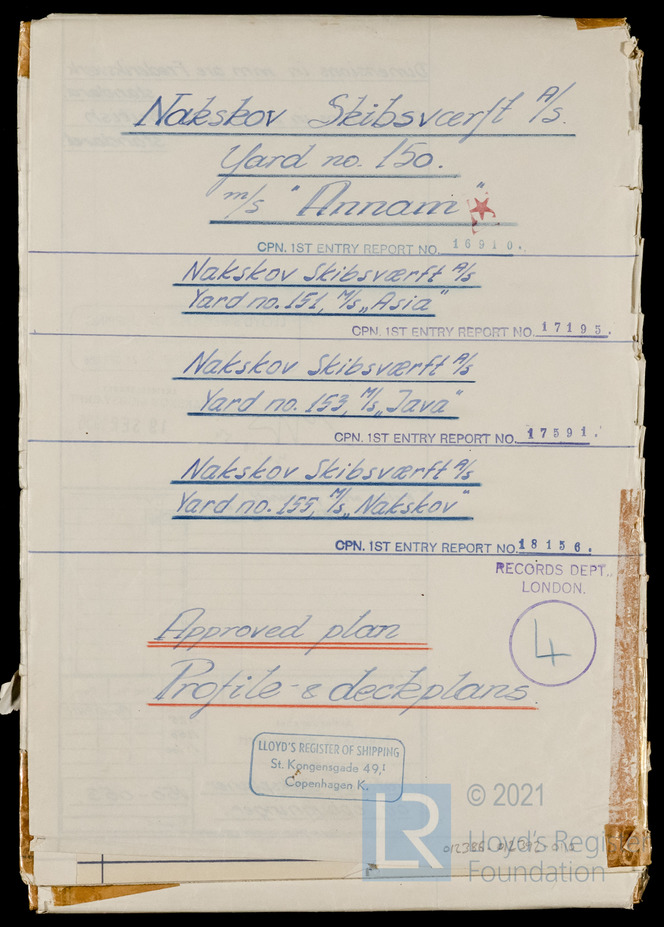 Nakskov Skibsværft A/S.
Yard no. 150.
m/s "Annam"
CPN. 1ST ENTRY REPORT NO. 16910.
Nakskov Skibsværft A/S
Yard no. 151, M/S „Asia"
CPN. 1ST ENTRY REPORT NO. 17195.
Nakskov Skibsværft A/S
Yard no. 153, M/S „Java"
CPN. 1ST ENTRY REPORT NO. 17591.
Nakskov Skibsværft A/S
Yard no. 155, M/S „Nakskov"
CPN. 1ST ENTRY REPORT NO. 18156.
RECORDS DEPT.,
LONDON.
4
Approved plan
Profile- & deckplans.
LLOYD'S REGISTER OF SHIPPING
St. Kongensgade 49,¹
Copenhagen K.
LR
© 2021
Lloyd's Register
Foundation